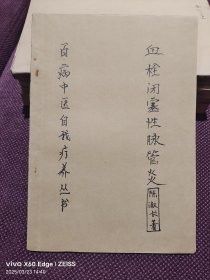 血栓闭塞性脉管炎
陈淑长著
百病中医自我疗养丛书
vivo X60 Edge | ZEISS
2025/03/23 14:40